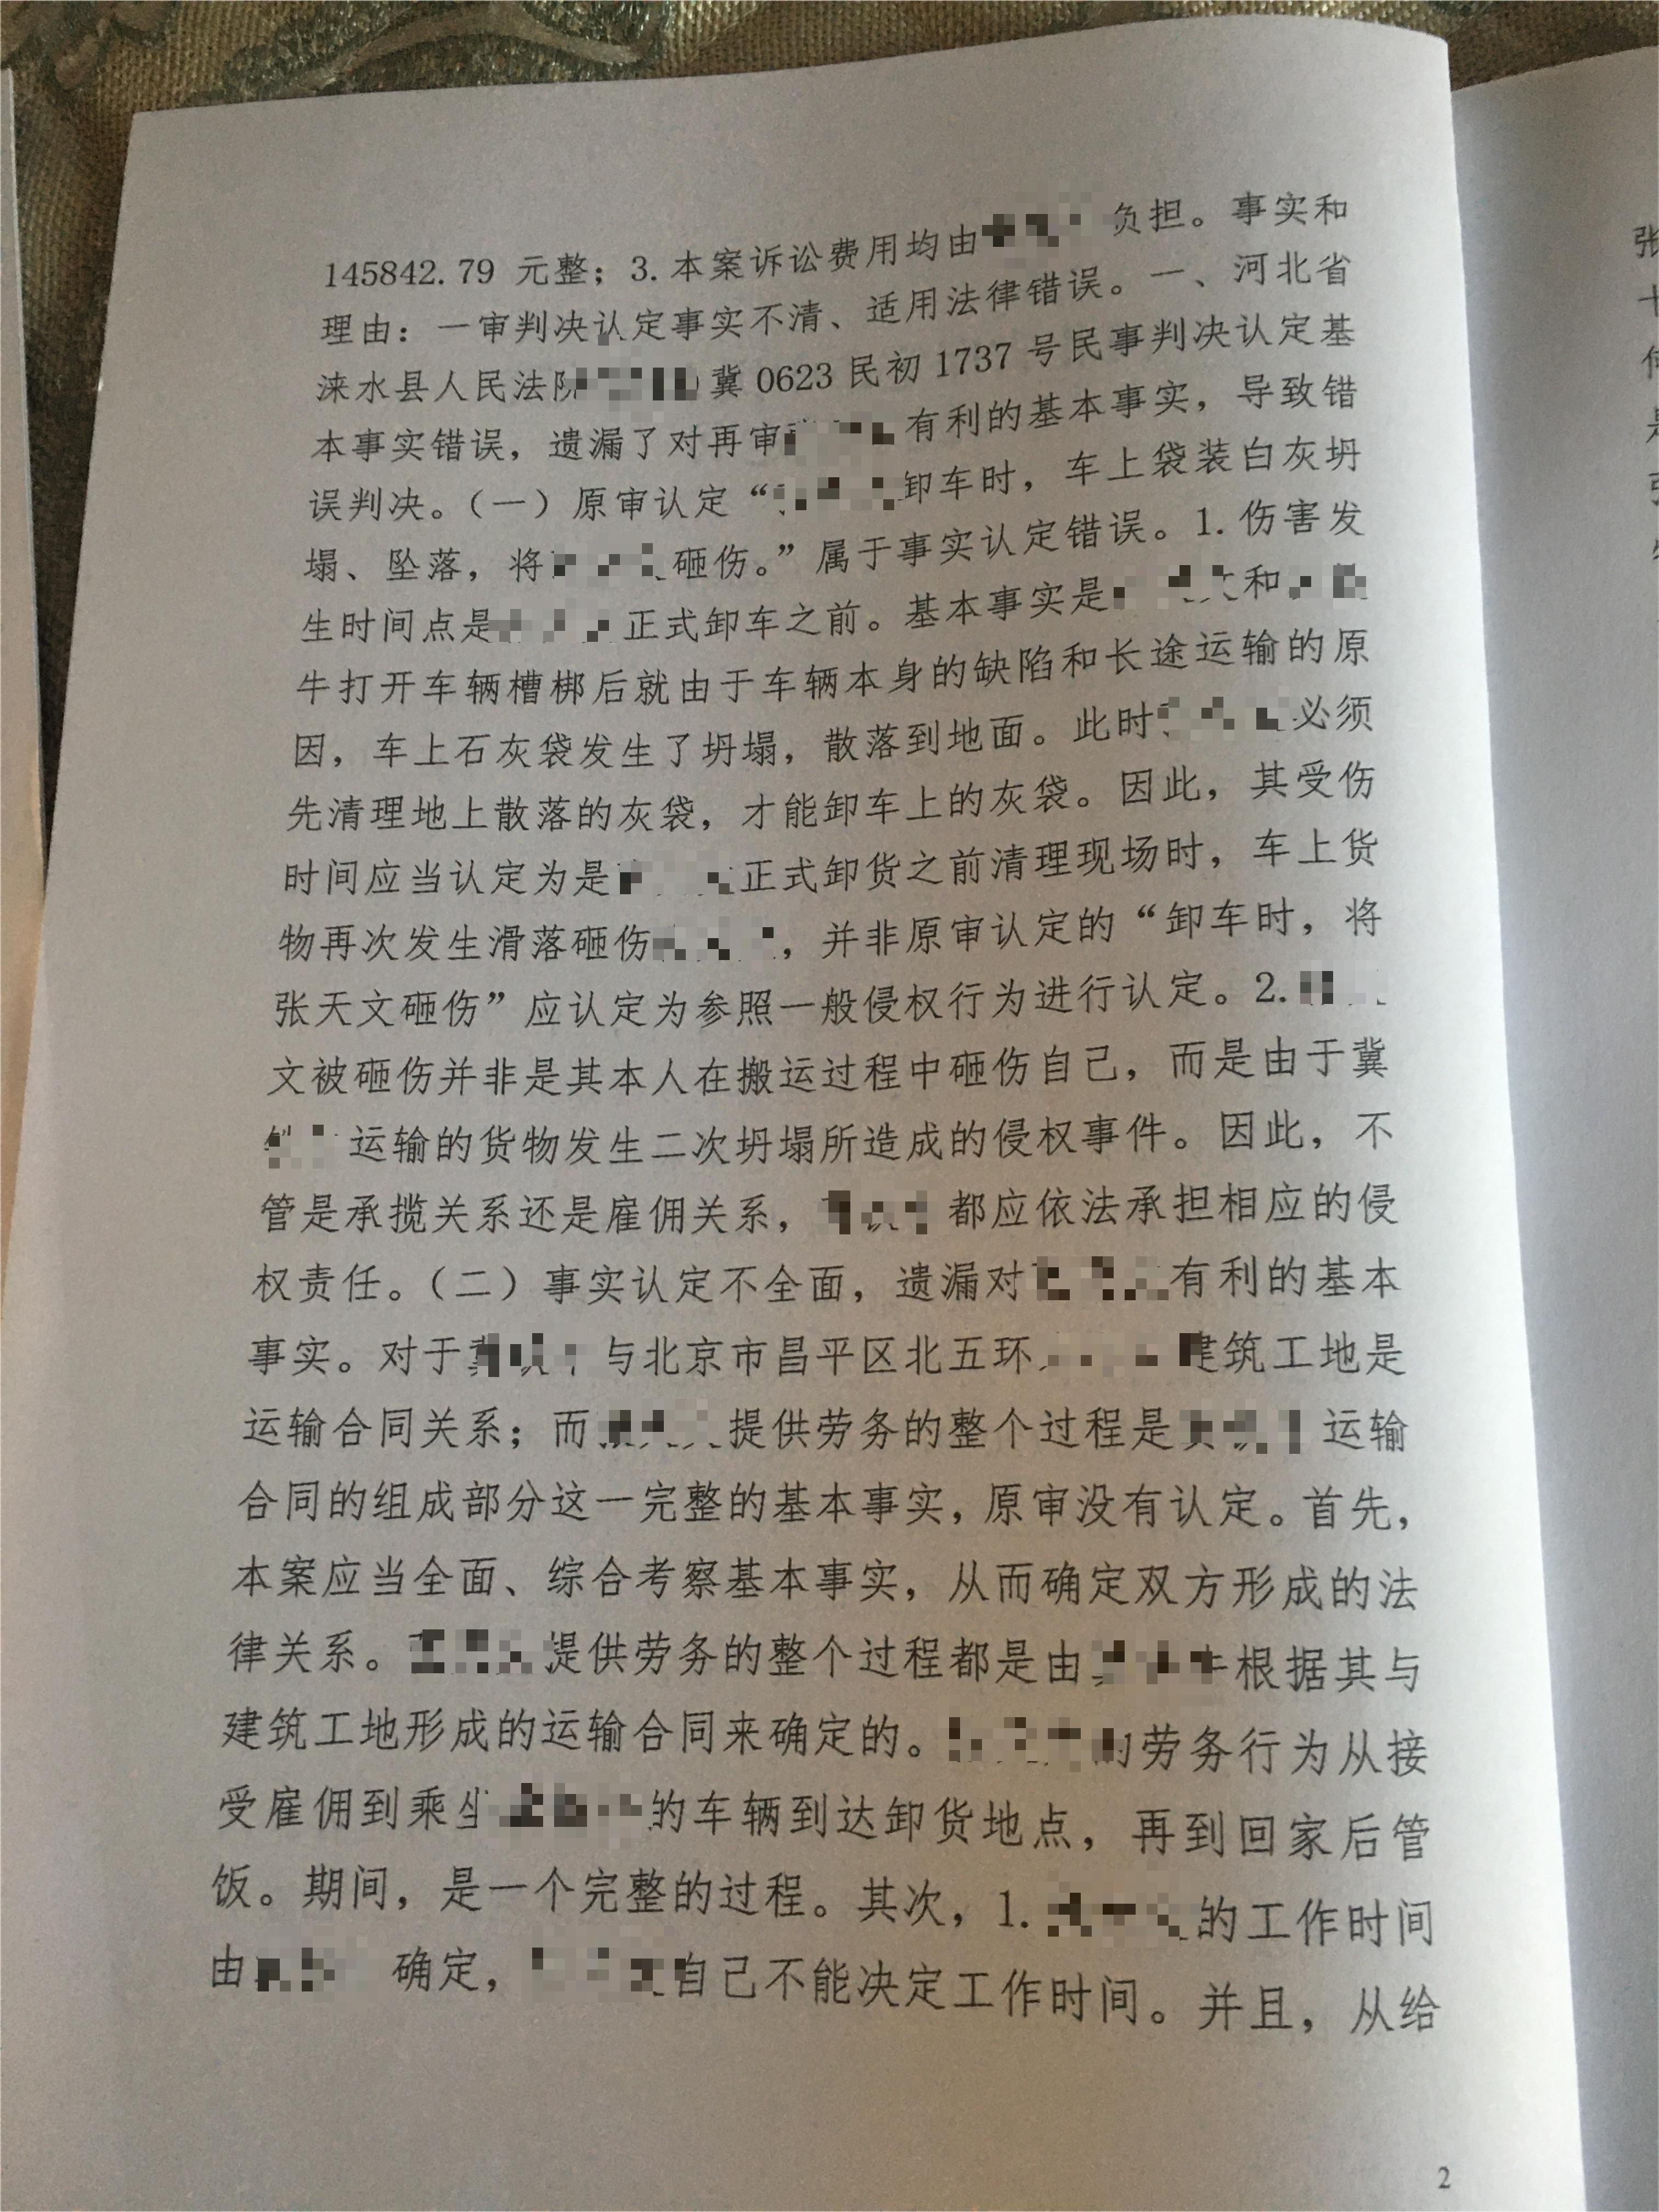 145842.79 元整；3.本案诉讼费用均由 负担。事实和
理由：一审判决认定事实不清、适用法律错误。一、河北省
涞水县人民法院 冀 0623 民初 1737 号民事判决认定基
本事实错误，遗漏了对再审 有利的基本事实，导致错
误判决。（一）原审认定“ 卸车时，车上袋装白灰坍
塌、坠落，将 砸伤。”属于事实认定错误。1.伤害发
生时间点是 正式卸车之前。基本事实是 和
牛打开车辆槽梆后就由于车辆本身的缺陷和长途运输的原
因，车上石灰袋发生了坍塌，散落到地面。此时 必须
先清理地上散落的灰袋，才能卸车上的灰袋。因此，其受伤
时间应当认定为是 正式卸货之前清理现场时，车上货
物再次发生滑落砸伤 ，并非原审认定的“卸车时，将
张天文砸伤”应认定为参照一般侵权行为进行认定。2.
文被砸伤并非是其本人在搬运过程中砸伤自己，而是由于冀
运输的货物发生二次坍塌所造成的侵权事件。因此，不
管是承揽关系还是雇佣关系， 都应依法承担相应的侵
权责任。（二）事实认定不全面，遗漏对 有利的基本
事实。对于 与北京市昌平区北五环 建筑工地是
运输合同关系；而 提供劳务的整个过程是 运输
合同的组成部分这一完整的基本事实，原审没有认定。首先，
本案应当全面、综合考察基本事实，从而确定双方形成的法
律关系。 提供劳务的整个过程都是由 根据其与
建筑工地形成的运输合同来确定的。 的劳务行为从接
受雇佣到乘坐 的车辆到达卸货地点，再到回家后管
饭。期间，是一个完整的过程。其次，1. 的工作时间
由 确定， 自己不能决定工作时间。并且，从给
2
张